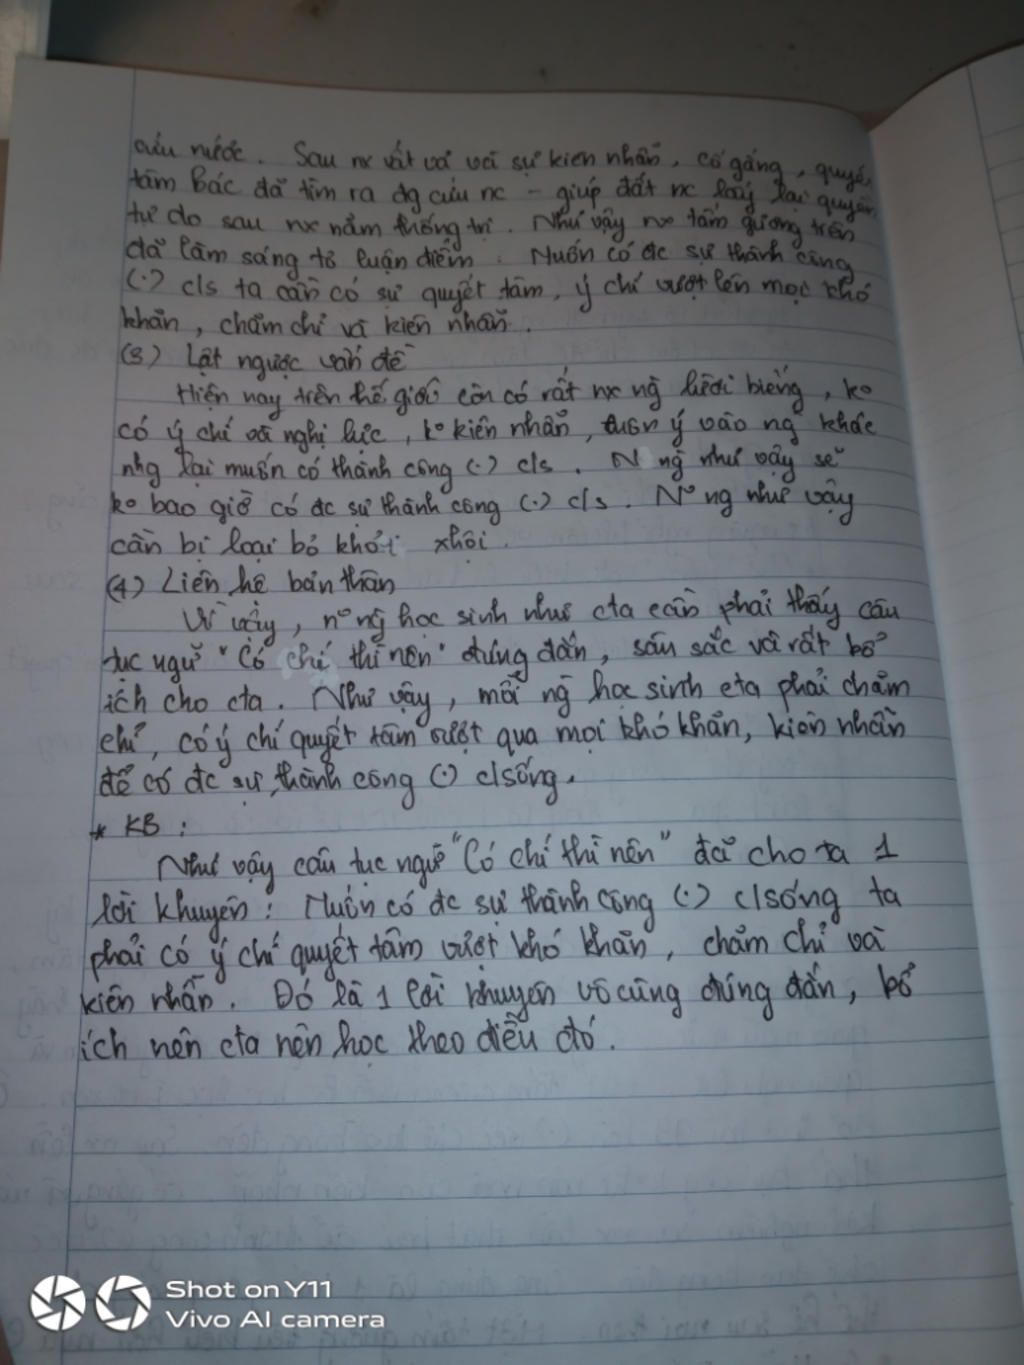 cứu nước. Sau nx vất vả và sự kiên nhẫn, cố gắng, quyết
tâm Bác đã tìm ra đg cứu nc - giúp đất nc lấy lại quyền
tự do sau nx năm thống trị. Như vậy nx tấm gương trên
đã làm sáng tỏ luận điểm: Muốn có đc sự thành công
(.) c/s ta cần có sự quyết tâm, ý chí vượt lên mọi khó
khăn, chăm chỉ và kiên nhẫn.
(3) Lật ngược vấn đề
Hiện nay trên thế giới còn có rất nx ng lười biếng, ko
có ý chí và nghị lực, ko kiên nhẫn, ý vào ng khác
nhg lại muốn có thành công (.) c/s. N ng như vậy sẽ
ko bao giờ có đc sự thành công (.) c/s. N~ ng như vậy
cần bị loại bỏ khỏi xhội.
(4) Liên hệ bản thân
Vì vậy, n~ ng học sinh như cta cần phải thấy câu
tục ngữ "Có chí thì nên" đúng đắn, sâu sắc và rất bổ
ích cho cta. Như vậy, mỗi ng học sinh cta phải chăm
chỉ, có ý chí quyết tâm vượt qua mọi khó khăn, kiên nhẫn
để có đc sự thành công (.) c/sống.
* KB:
Như vậy câu tục ngữ "Có chí thì nên" đã cho ta 1
lời khuyên: Muốn có đc sự thành công (.) c/sống ta
phải có ý chí quyết tâm vượt khó khăn, chăm chỉ và
kiên nhẫn. Đó là 1 lời khuyên vô cùng đúng đắn, bổ
ích nên cta nên học theo điều đó.
Shot on Y11
Vivo AI camera